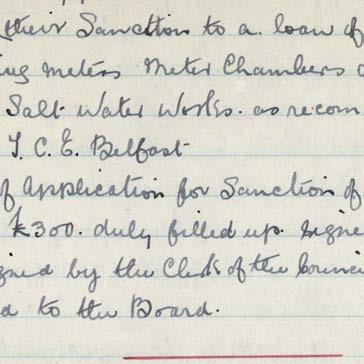 their Sanction to a loan of
ing meters Meter Chambers
Salt Water Works. as recom
T. C. E. Belfast
of Application for Sanction of
£300. duly filled up. signe
gned by the Clerk of the Counci
d to the Board.